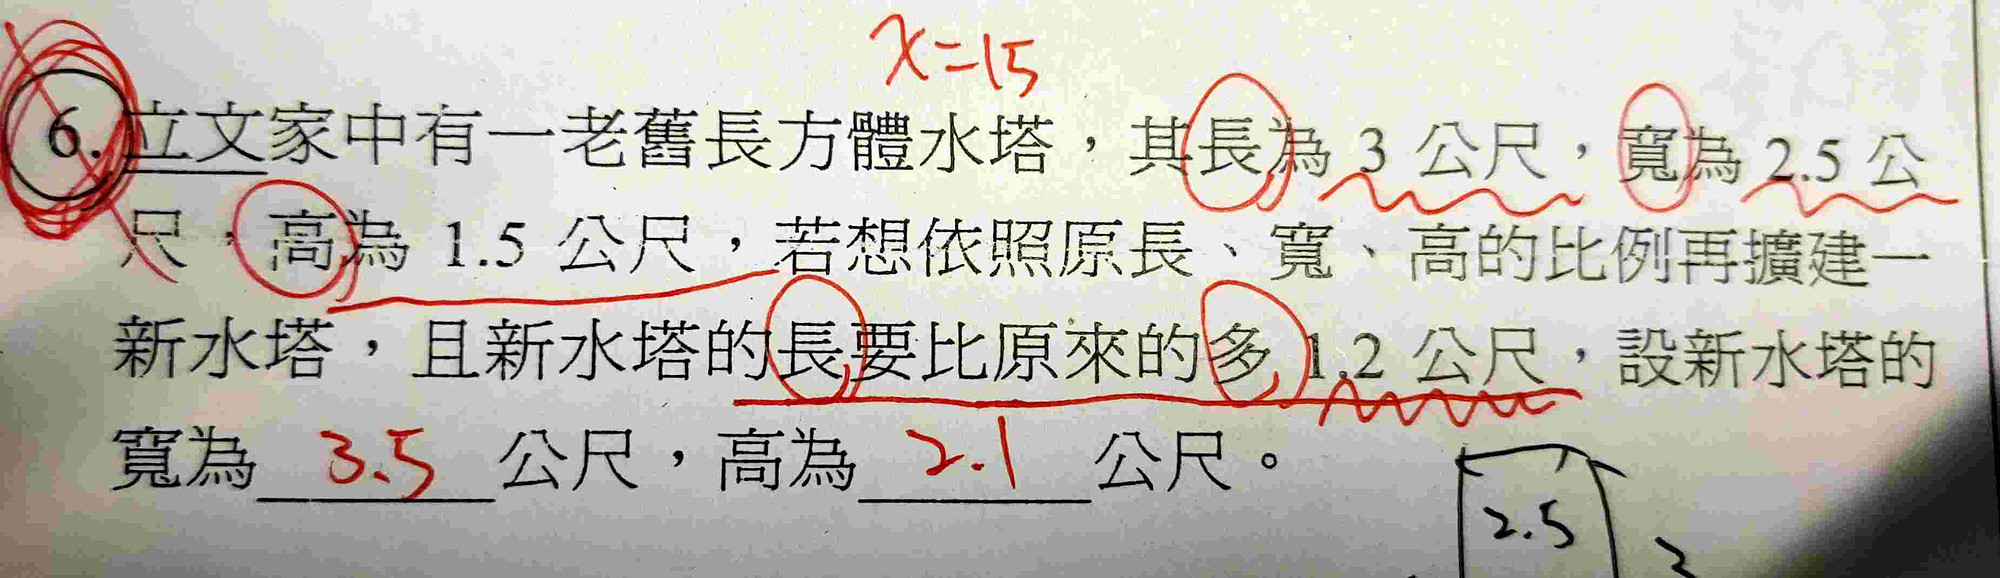 x=15
6. 立文家中有一老舊長方體水塔，其長為 3 公尺，寬為 2.5 公
尺，高為 1.5 公尺，若想依照原長、寬、高的比例再擴建一
新水塔，且新水塔的長要比原來的多 1.2 公尺，設新水塔的
寬為 3.5 公尺，高為 2.1 公尺。
2.5
3